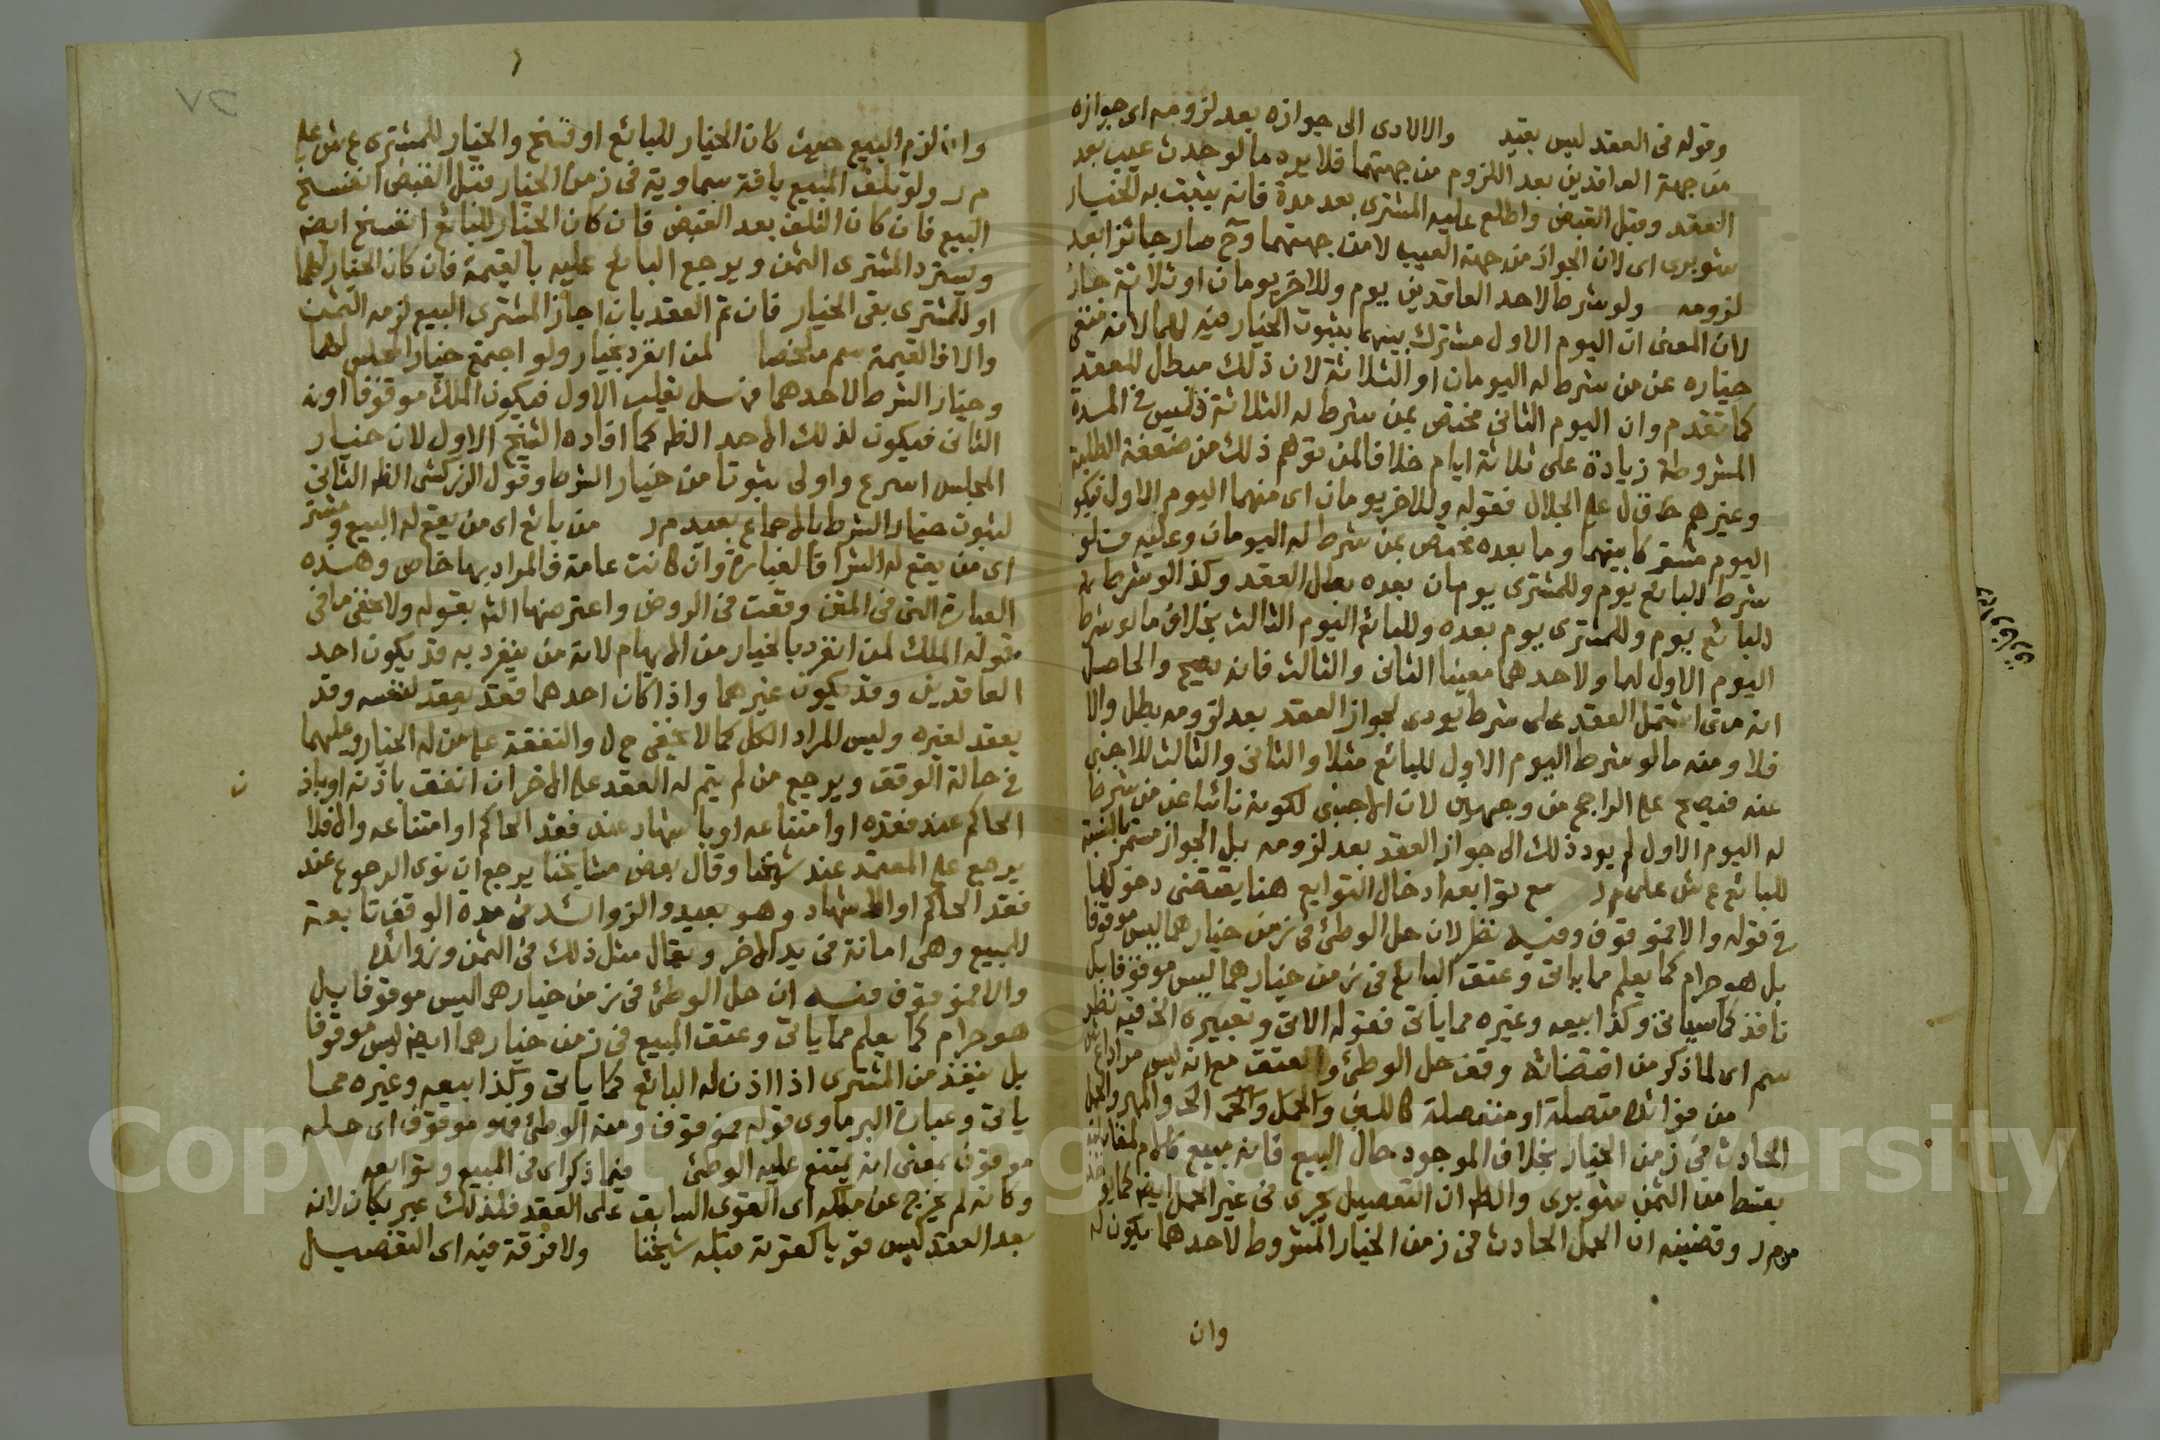 وقوله فى العقد ليس بقيد والا لادى الى جوازه بعد لزومه اى جوازه
من جهة العاقدين بعد اللزوم من جهتهما فلا يرد ما لو حدث عيب بعد
العقد وقبل القبض واطلع عليه المشترى بعد مدة فانه يثبت به الخيار
شوبرى اى لان الجواز من جهة العيب لا من جهتهما وح صار جائزا بعد
لزومه ولو شرط لاحد العاقدين يوم وللاخر يومان او ثلاثة جاز
لان المعنى ان اليوم الاول مشترك بينهما بثبوت الخيار فيه لهما لا انه منتفى
خياره عن من شرط له اليومان او الثلاثة لان ذلك مبطل للعقد
كما تقدم وان اليوم الثانى مختص بمن شرط له الثلاثة فليس فى المدة
المشروطة زيادة على ثلاثة ايام خلافا لمن توهم ذلك من ضعفة الطلبة
وغيرهم ط ق ل على الجلال فقوله وللاخر يومان اى منهما اليوم الاول فيكو
اليوم مشتركا بينهما وما بعده مختص بمن شرط له اليومان وعليه فلو
شرط للبائع يوم وللمشترى يومان بعده بطل العقد وكذا لو شرط
للبائع يوم وللمشترى يوم بعده وللبائع اليوم الثالث بخلاف ما لو شرط
اليوم الاول لهما ولاحدهما معينا الثانى والثالث فانه يصح والحاصل
انه متى اشتمل العقد على شرط يودى لجواز العقد بعد لزومه بطل والا
فلا ومنه ما لو شرط اليوم الاول للبائع مثلا والثانى والثالث للاجنبى
عنه فيصح على الراجح من وجهين لان الاجنبى لكونه نائبا عن من شرط
له اليوم الاول لم يود ذلك الى جواز العقد بعد لزومه بل الجواز مستمر بالنسبة
للبائع ع ش على م ر مع توابعه ادخال التوابع هنا يقتضى دخولها
فى قوله والا فموقوف وفيه نظر لان حل الوطئ فى زمن خيارهما ليس موقوفا
بل هو حرام كما يعلم مما ياتى وعتق البائع فى زمن خيارهما ليس موقوفا بل
نافذ كما سياتى وكذا بيعه وغيره مما ياتى فقوله الاتى وتعبيره الخ فيه نظر
سم اى لما ذكر من اقتضائه وقف حل الوطئ والعتق مع انه ليس مرادا ع ش
من فوائده متصلة او منفصلة كاللبن والحمل والمهر والحمل
الحادث فى زمن الخيار بخلاف الموجود حال البيع فانه مبيع كالام
بقسط من الثمن شوبرى والظ ان التفصيل يجرى فى غير الحمل ايضا
م ر وقضيته ان الحمل الحادث فى زمن الخيار المشروط لاحدهما يكون له
وان
وان لزم البيع حيث كان الخيار للبائع او فسخ والخيار للمشترى ع ش على
م ر ولو تلف المبيع بافة سماوية فى زمن الخيار قبل القبض انفسخ
البيع فان كان التلف بعد القبض فان كان الخيار للبائع انفسخ ايضا
ويسترد المشترى الثمن ويرجع البائع عليه بالقيمة فان كان الخيار لهما
او للمشترى بقى الخيار فان تم العقد بان اجاز المشترى البيع لزمه الثمن
والا فالقيمة سم ملخصا لمن انفرد بخيار ولو اجتمع خيار المجلس لهما
وخيار الشرط لاحدهما فهل يغلب الاول فيكون الملك موقوفا او
الثانى فيكون لذلك الاحد الظ كما افاده الشيخ الاول لان خيار
المجلس اسرع واولى ثبوتا من خيار الشرط وقول الزركشى الظ الثانى
لثبوت خيار الشرط بالاجماع بعيد م ر من بائع اى من يقع له البيع ومشتر
اى من يقع له الشرا فالعبارة وان كانت عامة فالمراد بها خاص وهذه
العبارة التى فى المتن وقعت فى الروض واعترضها الش بقوله ولا يخفى ما فى
قوله الملك لمن انفرد بالخيار من الايهام لانه من ينفرد به قد يكون احد
العاقدين وقد يكون غيرهما واذا كان احدهما فقد يعقد لنفسه وقد
يعقد لغيره وليس المراد الكل كما لا يخفى ح ل والنفقة على من له الخيار وعليهما
فى حالة الوقف ويرجع من لم يتم له العقد على الاخر ان انفق باذنه او باذن
الحاكم عند فقده او امتناعه او باشهاد عند فقد الحاكم او امتناعه والا فلا
يرجع على المعتمد عند شيخنا وقال بعض مشايخنا يرجع ان نوى الرجوع عند
فقد الحاكم او الاشهاد وهو بعيد والزوائد فى مدة الوقف تابعة
للمبيع وهى امانة فى يد الاخر ويقال مثل ذلك فى الثمن وزوائده
والا فموقوف فيه ان حل الوطئ فى زمن خيارهما ليس موقوفا بل
هو حرام كما يعلم مما ياتى وعتق المبيع فى زمن خيارهما ايضا ليس موقوفا
بل ينفذ من المشترى اذا اذن له البائع كما ياتى وكذا بيعه وغيره مما
ياتى وعبارة البرماوى قوله فموقوف ومنه الوطئ فهو موقوف اى حله
موقوف بمعنى انه يمتنع عليه الوطئ فيما ذكر اى فى المبيع وتوابعه
وكانه لم يخرج عن ملكه اى القوى السابق على العقد فلذلك عبر بكان لانه
بعد العقد ليس قويا كقوته قبله شيخنا ولا فرق فيه اى التفصيل